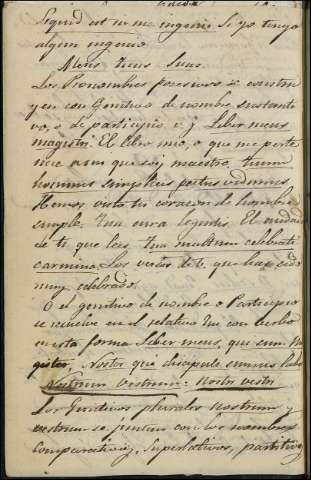 Siquid est in me ingenii Si yo tengo
algun ingenio
Meus Tuus Suus.
Los Pronombres posesivos se constru
yen con Genitivo de nombre sustanti
vo, o de participio v. g. Liber meus
magistri. El libro mio, o que me perte
nece a mi que soy maestro, Tuum
hominis simplicis pectus vidimus
Hemos visto tu corazon de hombre
simple. Tua cura legentis. El cuidado
de ti que lees, Tua multum celebrati
carmina. Los versos de ti, que has sido
muy celebrado.
O el genitivo de nombre o Participio
se resuelve en el relativo con verbo
en esta forma Liber meus, qui sum Ma
gister. Noster que discipuli
Nostrum vestrum: Nostri vestri
Los Genitivos plurales Nostrum y
vestrum se juntan con los nombres
comparativos, superlativos, partitivos